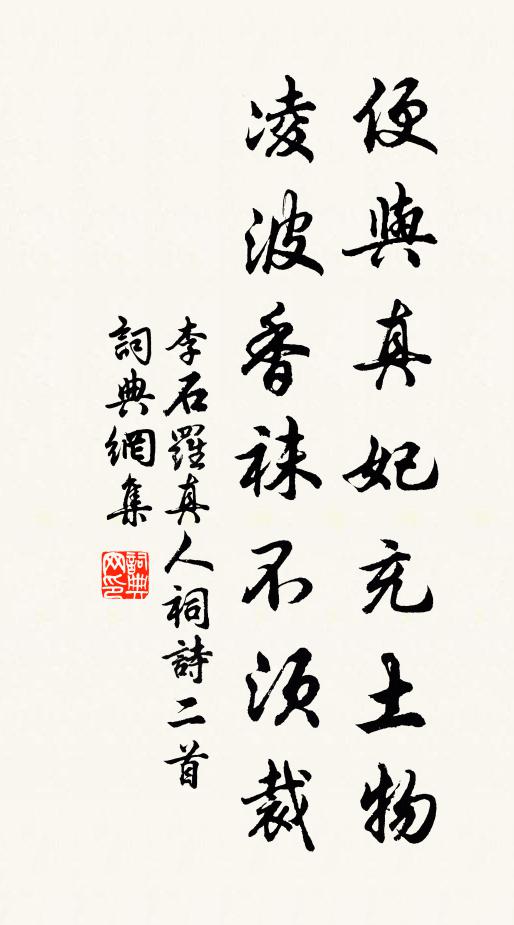 便與真妃充土物
凌波香袜不須裁
李石羅真人祠詩二首
詞典網集
詞典
网印